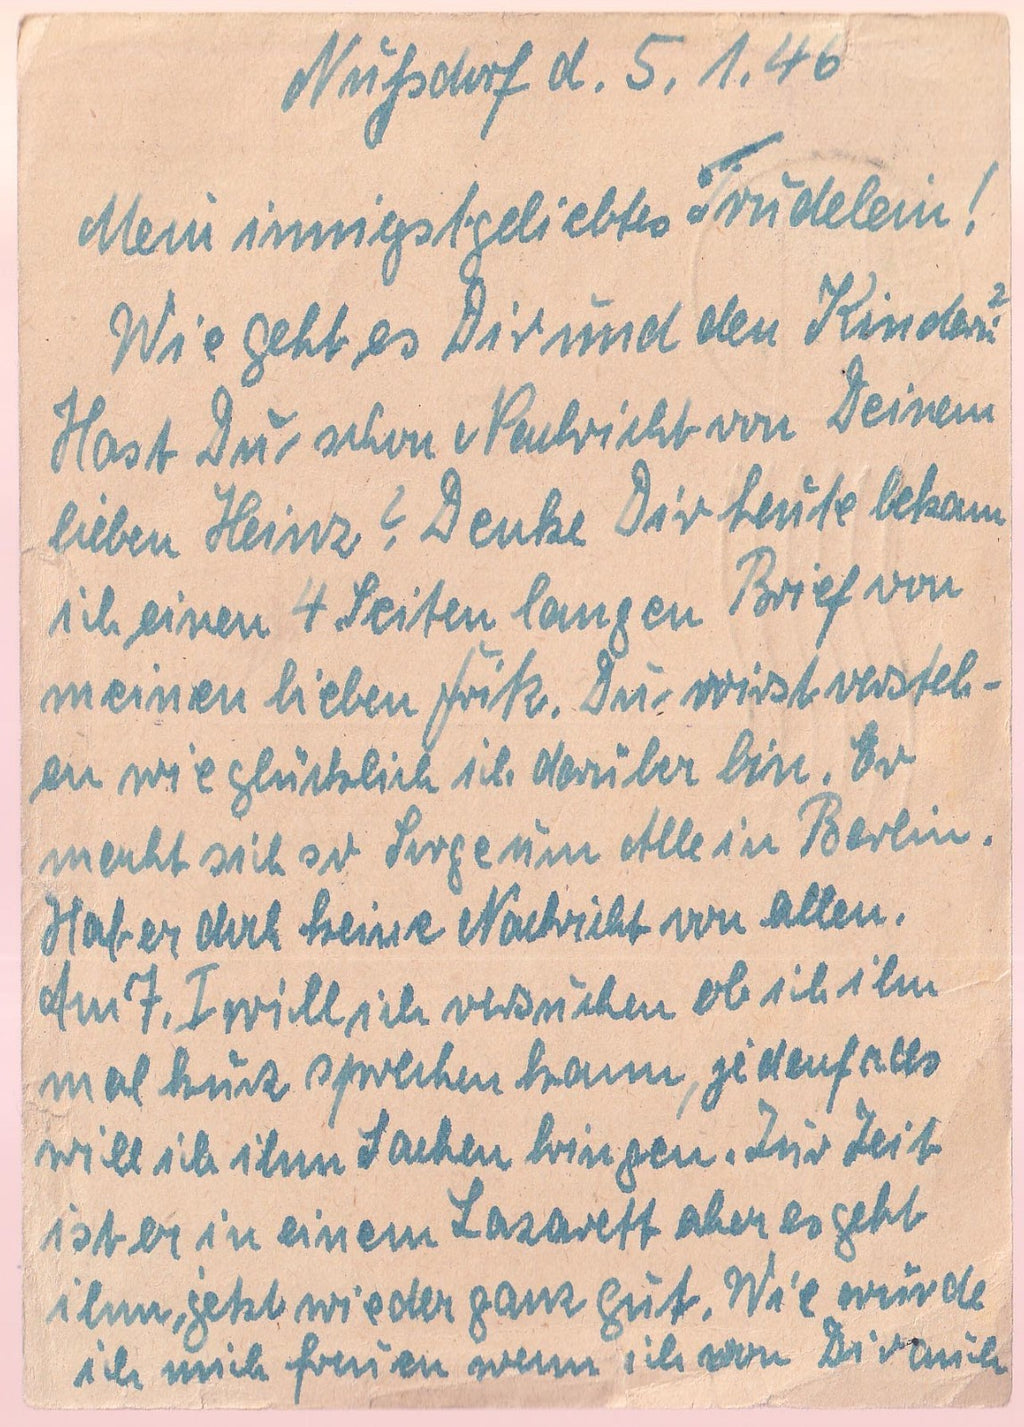 Nußdorf d. 5. 1. 46
Mein innigstgeliebtes Trudelein!
Wie geht es Dir und den Kindern?
Hast Du schon Nachricht von Deinem
lieben Heinz? Denke Dir heute bekam
ich einen 4 Seiten langen Brief von
meinen lieben Fritz. Du wirst versteh-
en wie glücklich ich darüber bin. Er
macht sich so Sorge um Alle in Berlin.
Hat er doch keine Nachricht von allen.
Am 7. I will ich versuchen ob ich ihn
mal kurz sprechen kann, jedenfalls
will ich ihm Sachen bringen. Zur Zeit
ist er in einem Lazarett aber es geht
ihm, jetzt wieder ganz gut. Wie würde
ich mich freuen wenn ich von Dir auch